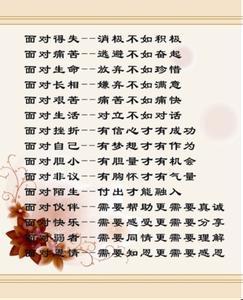 面对得失--消极不如积极
面对痛苦--逃避不如奋起
面对生命--放弃不如珍惜
面对长相--嫌弃不如满意
面对艰苦--痛苦不如痛快
面对生活--对立不如对话
面对挫折--有信心才有成功
面对自己--有梦想才有作为
面对胆小--有胆量才有机会
面对非议--有胸怀才有气量
面对陌生--付出才能融入
面对伙伴--需要帮助更需要真诚
面对快乐--需要感受更需要分享
面对弱者--需要同情更需要理解
面对恩情--需要知恩更需要感恩